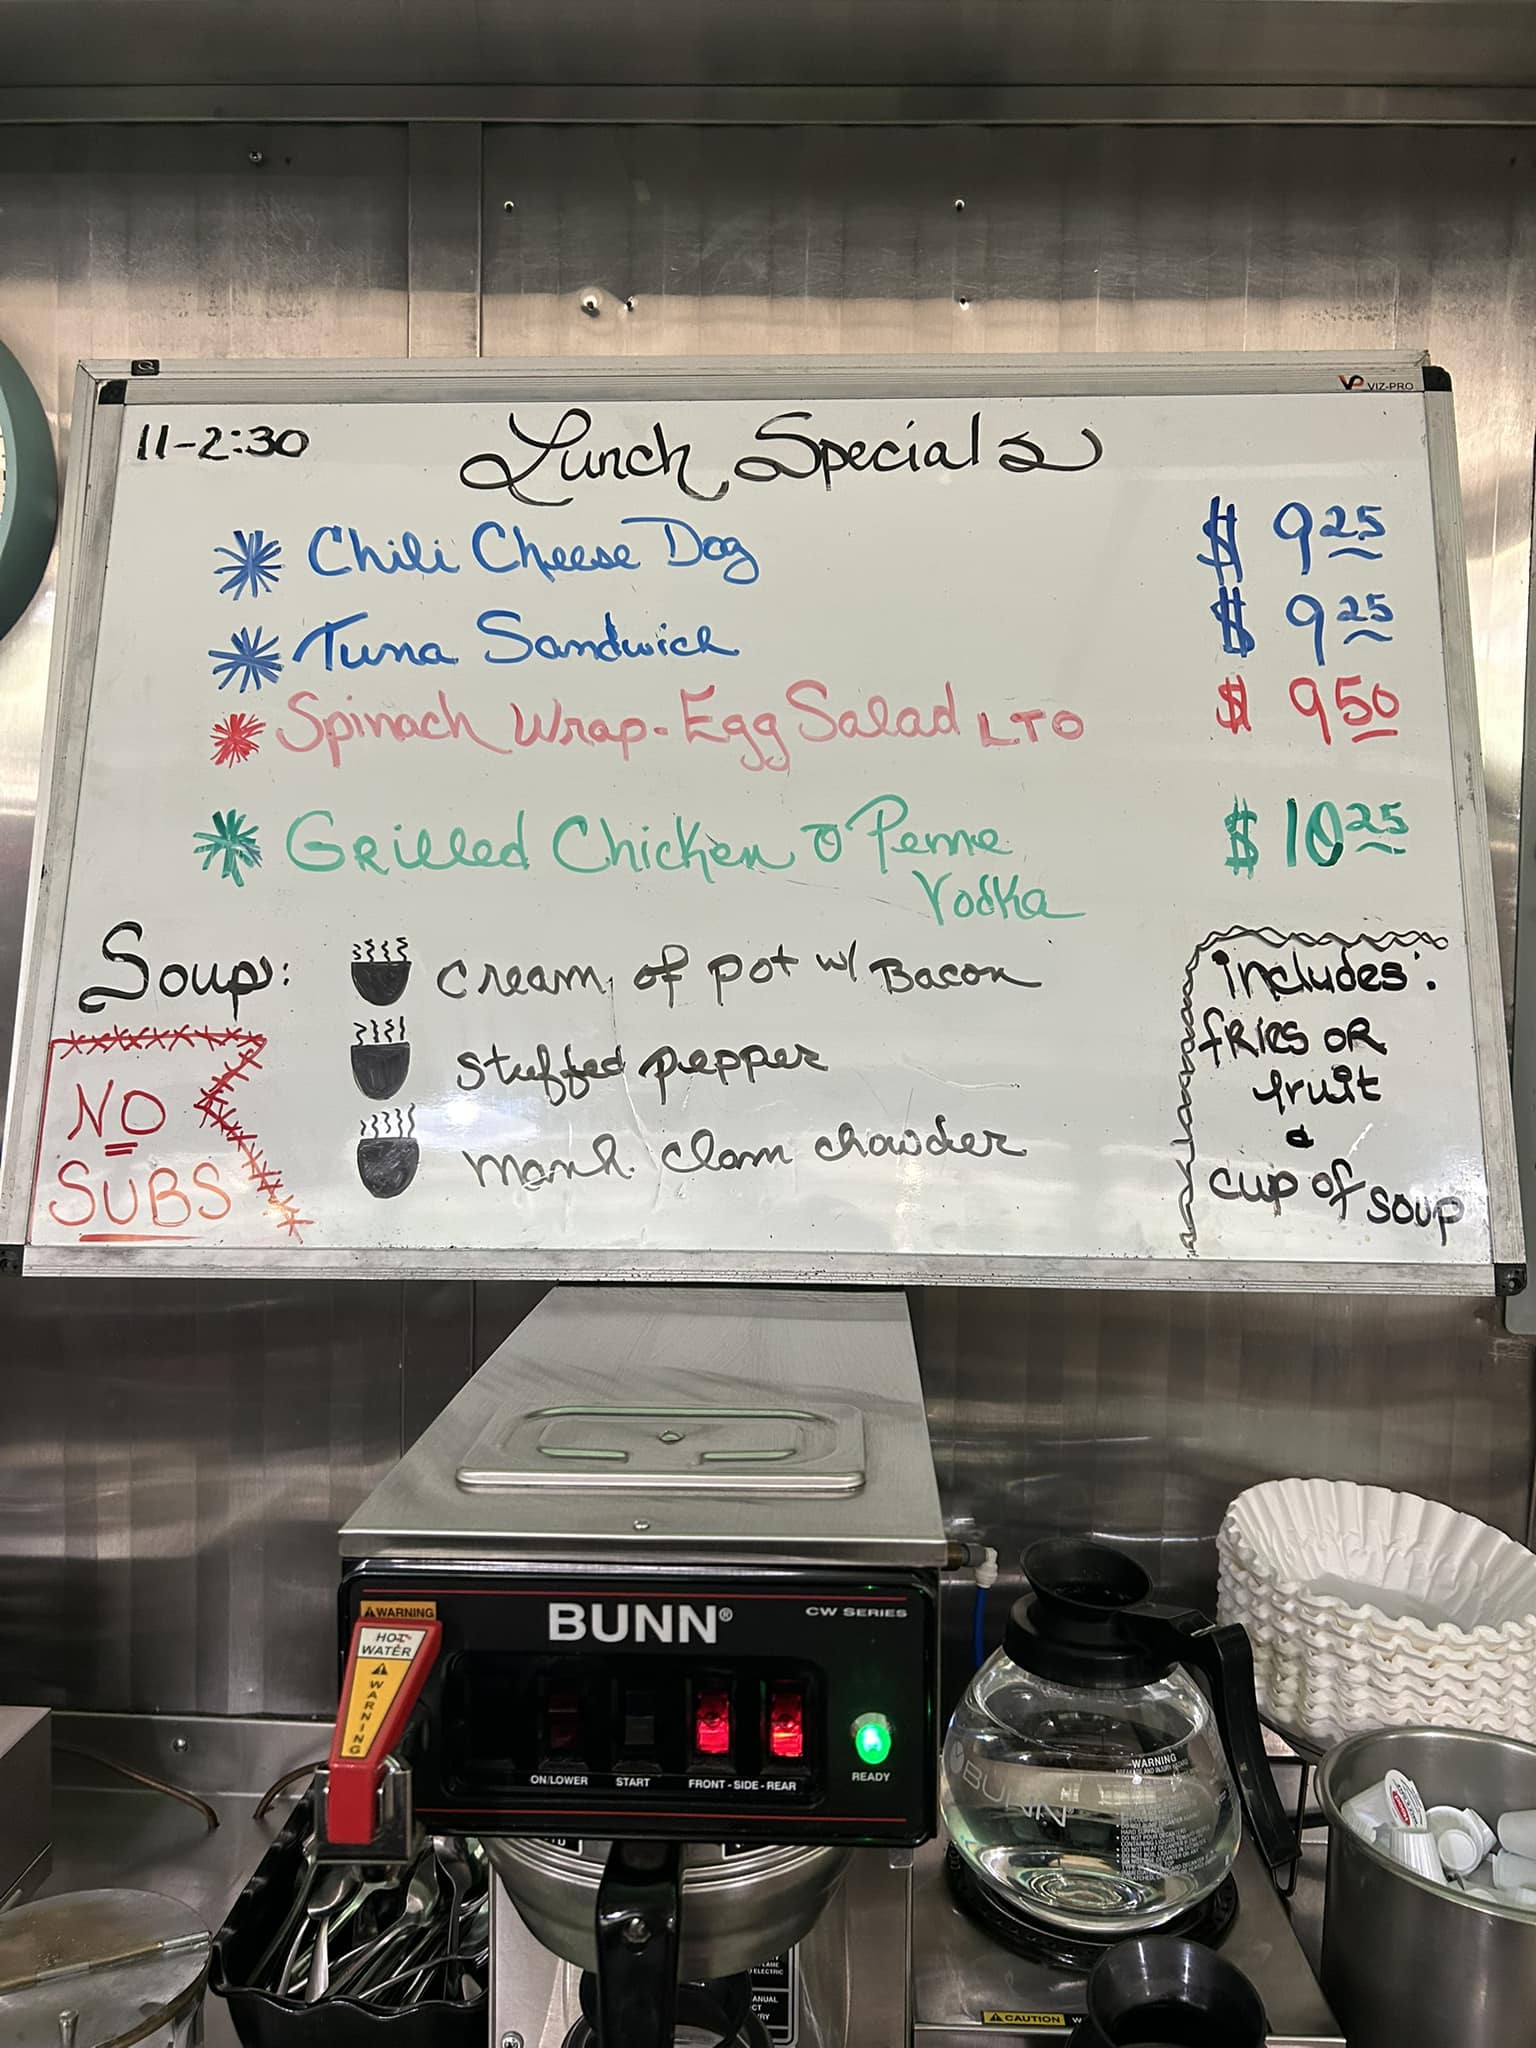 VIZ-PRO
11-2:30 Lunch Specials
Chili Cheese Dog $ 9 25
Tuna Sandwich $ 9 25
Spinach Wrap-Egg Salad LTO $ 9 50
Grilled Chicken o Penne $ 10 25
Vodka
Soup: cream of pot w/ Bacon
stuffed pepper
manh. clam chowder
NO
SUBS
includes:
fries OR
fruit
&
cup of soup
WARNING
HOT
WATER
WARNING
BUNN®
CW SERIES
ON/LOWER START FRONT - SIDE - REAR READY
BUNN®
WARNING
CAUTION